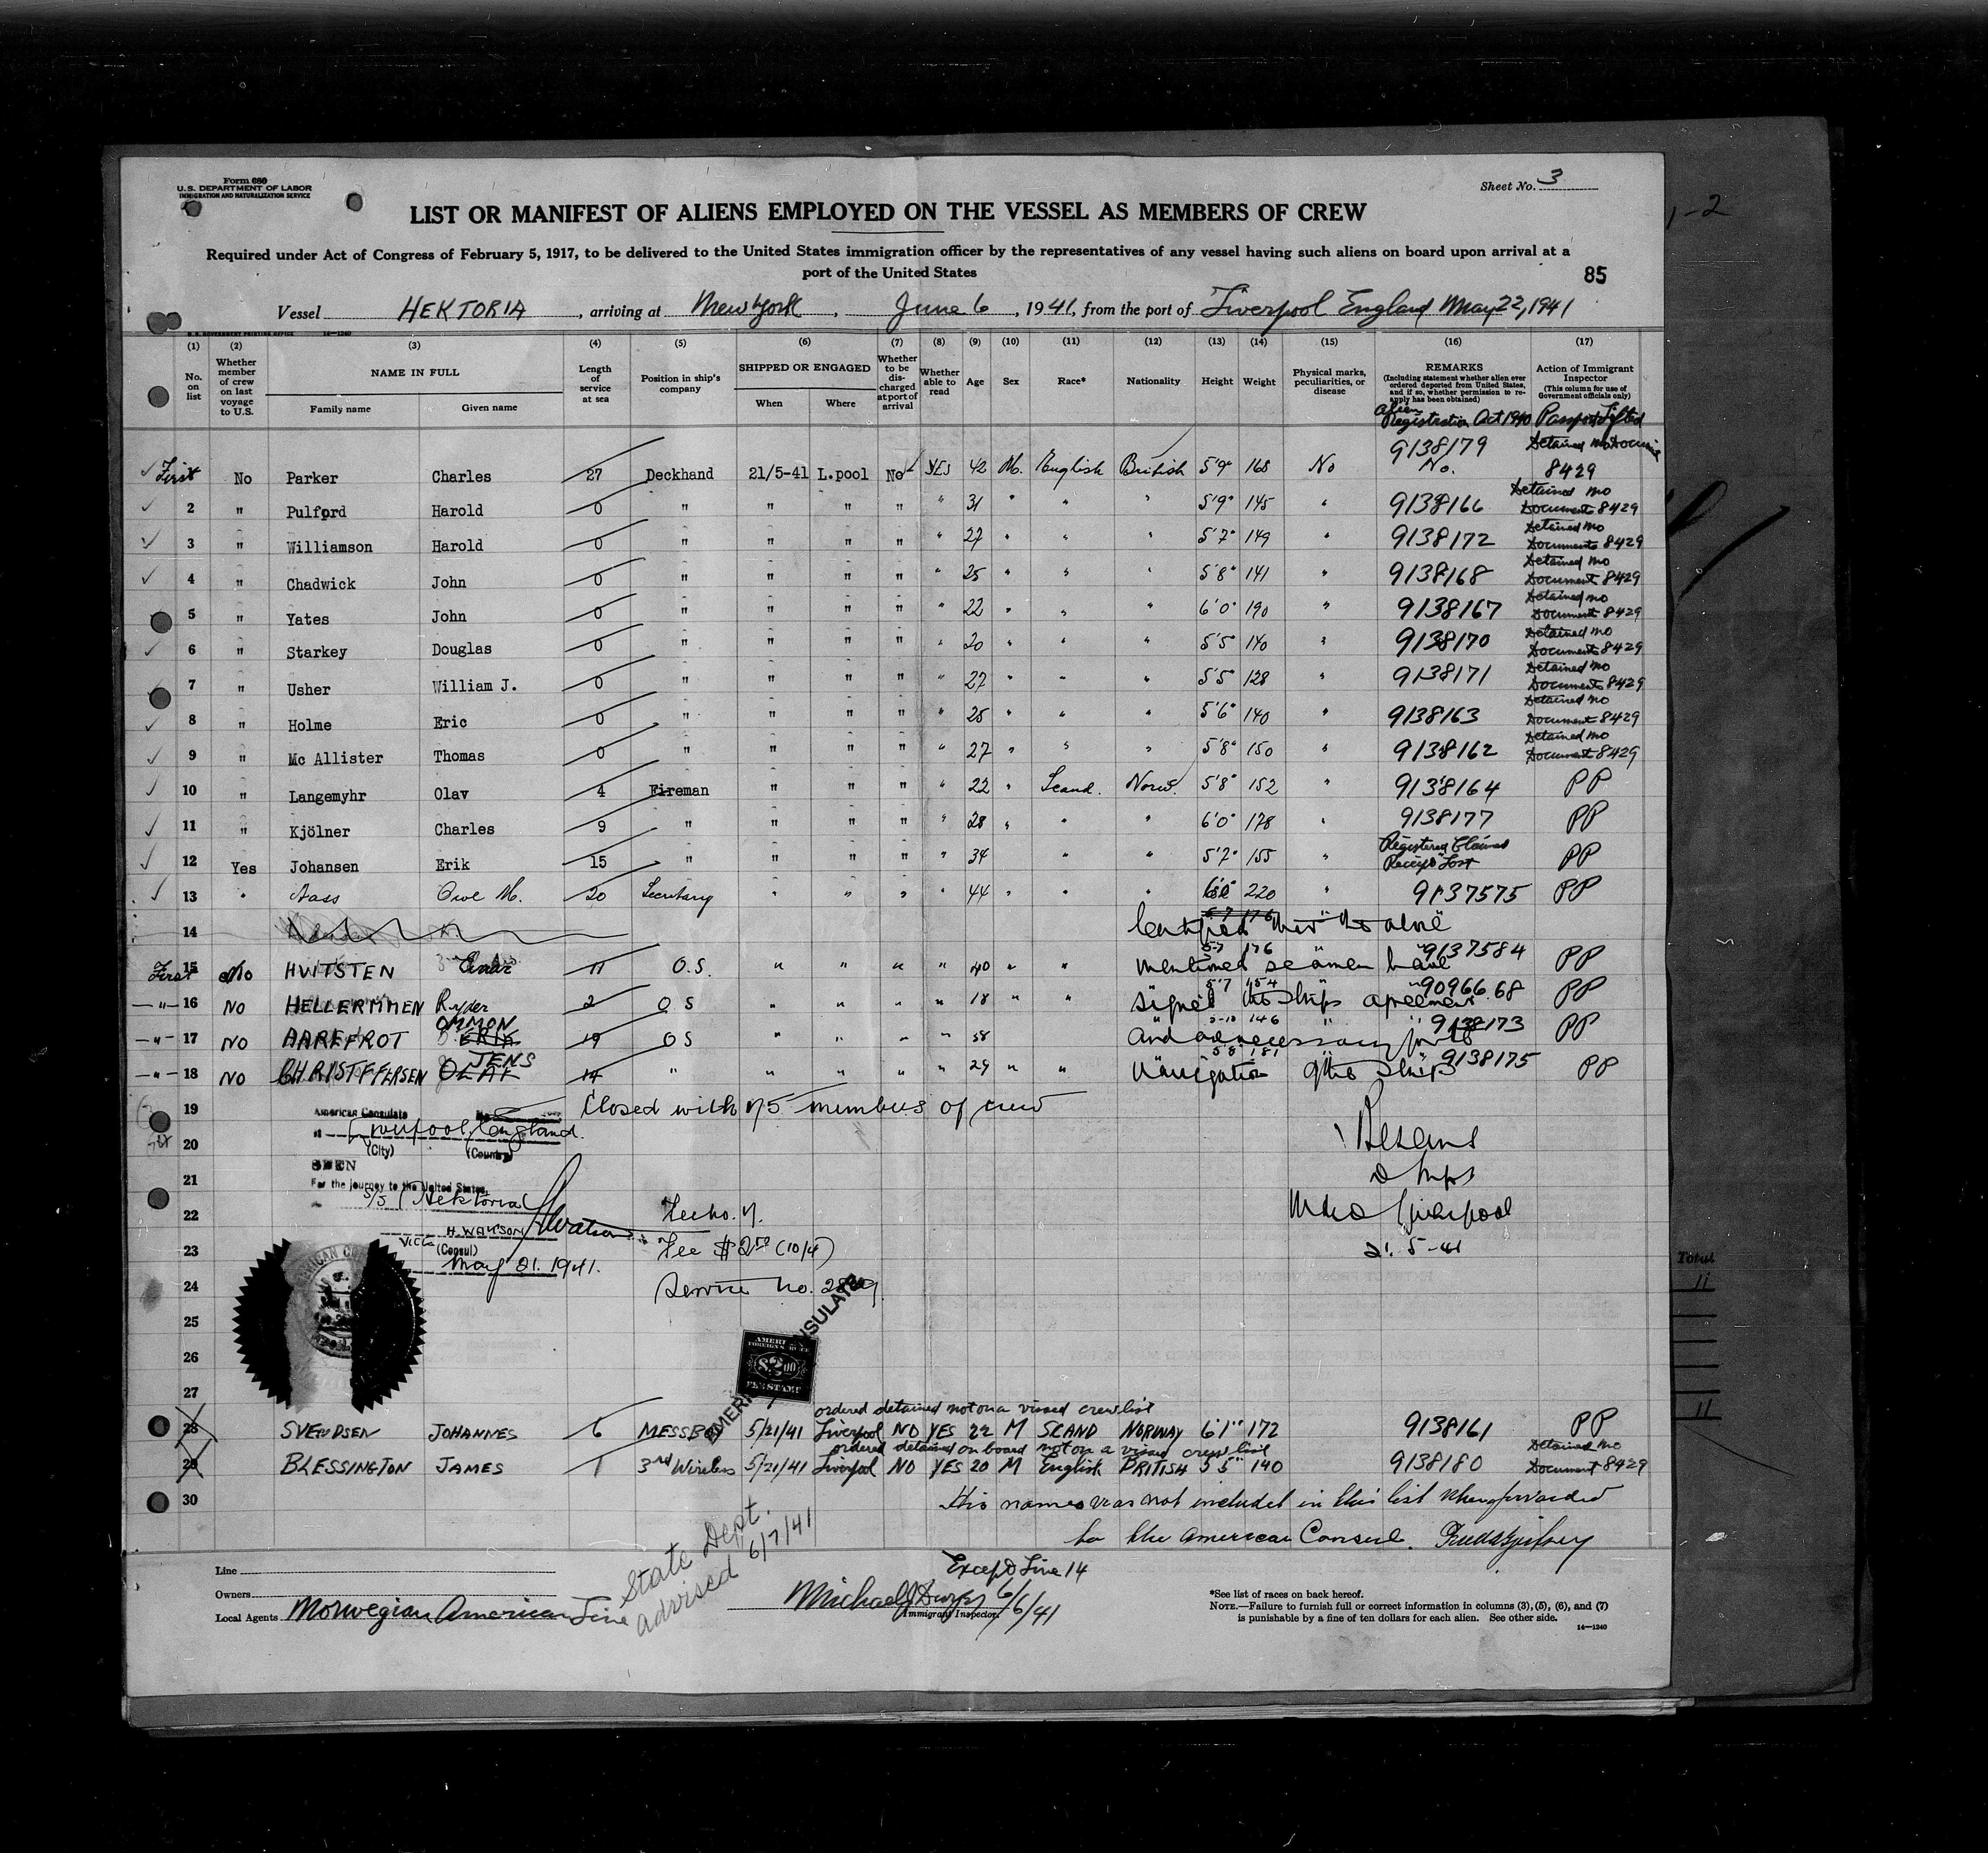 Form 680
U.S. DEPARTMENT OF LABOR
IMMIGRATION AND NATURALIZATION SERVICE
Sheet No. 3
1-2
LIST OR MANIFEST OF ALIENS EMPLOYED ON THE VESSEL AS MEMBERS OF CREW
Required under Act of Congress of February 5, 1917, to be delivered to the United States immigration officer by the representatives of any vessel having such aliens on board upon arrival at a
port of the United States
85
Vessel HEKTORIA, arriving at New York, June 6, 1941, from the port of Liverpool England May 22, 1941
U.S. GOVERNMENT PRINTING OFFICE 14—1240
(1) (2) (3) (4) (5) (6) (7) (8) (9) (10) (11) (12) (13) (14) (15) (16) (17)
No. on list Whether member of crew on last voyage to U.S. NAME IN FULL Family name Given name Length of service at sea Position in ship's company SHIPPED OR ENGAGED When Where Whether to be discharged at port of arrival Whether able to read Age Sex Race* Nationality Height Weight Physical marks, peculiarities, or disease REMARKS (Including statement whether alien ever ordered deported from United States, and if so, whether permission to reapply has been obtained) Action of Immigrant Inspector (This column for use of Government officials only)
Alien Registration Act 1940 Passport Lifted
First No Parker Charles 27 Deckhand 21/5-41 L.pool No YES 42 M. English British 5'9" 168 No 9138179 No. Detained No 8429
2 " Pulford Harold 0 " " " " " 31 " " " 5'9" 145 " 9138166 Detained No Documents 8429
3 " Williamson Harold 0 " " " " " 27 " " " 5'7" 149 " 9138172 Detained No Documents 8429
4 " Chadwick John 0 " " " " " 25 " " " 5'8" 141 " 9138168 Detained No Document 8429
5 " Yates John 0 " " " " " 22 " " " 6'0" 190 " 9138167 Detained No Document 8429
6 " Starkey Douglas 0 " " " " " 20 " " " 5'5" 140 " 9138170 Detained No Documents 8429
7 " Usher William J. 0 " " " " " 27 " " " 5'5" 128 " 9138171 Detained No Documents 8429
8 " Holme Eric 0 " " " " " 25 " " " 5'6" 140 " 9138163 Detained No Document 8429
9 " Mc Allister Thomas 0 " " " " " 27 " " " 5'8" 150 " 9138162 Detained No Document 8429
10 " Langemyhr Olav 4 Fireman " " " " 22 " Scand. Norw. 5'8" 152 " 9138164 PP
11 " Kjölner Charles 9 " " " " " 28 " " " 6'0" 178 " 9138177 PP
12 Yes Johansen Erik 15 " " " " " 34 " " 5'7" 155 " Registered Claims Receipt Lost PP
13 " Aass Owe M. 20 Secretary " " " " 44 " " " 220 " 9137575 PP
14 Certified that the above
First 15 No HVITSTEN Einar 11 O.S. " " " " 40 " " 5-7 176 " 9137584 PP
mentioned seamen have
—"— 16 NO HELLERMMEN Ryder 2 O S " " " " 18 " " 5'7 154 " 90966.68 PP
signed the ships agreement
—"— 17 NO AAREFROT OMMON ERIK 19 OS " " " " 58 " " 5-10 146 " 9138173 PP
and are necessary for the
—"— 18 NO CHRISTFFERSEN JENS OLAF 14 " " " " " 29 " " 5'8 181 " 9138175 PP
Navigation of the ships
19 Closed with 75 members of crew
American Consulate
20 Liverpool, England.
(City) (Country)
SEEN
21 For the journey to the United States,
S/S Hektoria
22 Fee No. 7.
H. WATSON HWatson
Vice (Consul)
23 Fee $2.00 (10/4)
May 21. 1941.
24 Service No.
D Supt
MMO Liverpool
21. 5-41
25
26
27
AMERICAN FOREIGN SERVICE $2.00 FEE STAMP
AMERICAN CONSULATE
Total
11
11
ordered detained not on a visaed crew list
28 SVENDSEN JOHANNES 6 MESSBOY 5/21/41 Liverpool NO YES 22 M SCAND NORWAY 6'1" 172 9138161 PP
ordered detained on board not on a visaed crew list
29 BLESSINGTON JAMES 1 3rd Wireless 5/21/41 Liverpool NO YES 20 M English BRITISH 5'5" 140 9138180 Detained No Document 8429
30 This names was not included in this list when forwarded
to the American Consul.
State Dept. advised 6/7/41
Line
Except Line 14
Owners
Local Agents Norwegian American Line
Michael J 6/6/41
Immigrant Inspector
*See list of races on back hereof.
NOTE.—Failure to furnish full or correct information in columns (3), (5), (6), and (7)
is punishable by a fine of ten dollars for each alien. See other side.
14—1240